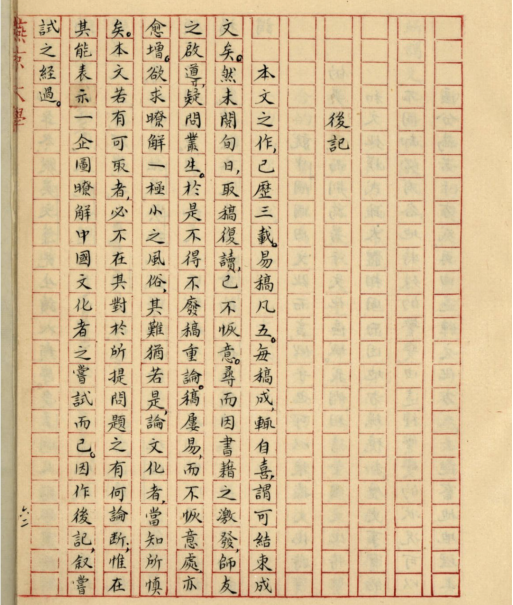 後記
本文之作,已歷三載。易稿凡五。每稿成,輒自喜,謂可結束成
文矣。然未閱旬日,取稿復讀,已不恢意。尋而因書籍之激發,師友
之啟導,疑問叢生。於是不得不廢稿重論。稿屢易,而不恢意處亦
愈增。欲求瞭解一極小之風俗,其難猶若是,論文化者,當知所慎
矣。本文若有可取者,必不在其對於所提問題之有何論斷;惟在
其能表示一企圖瞭解中國文化者之嘗試而已。因作後記,叙嘗
試之經過。
燕京大學
六二